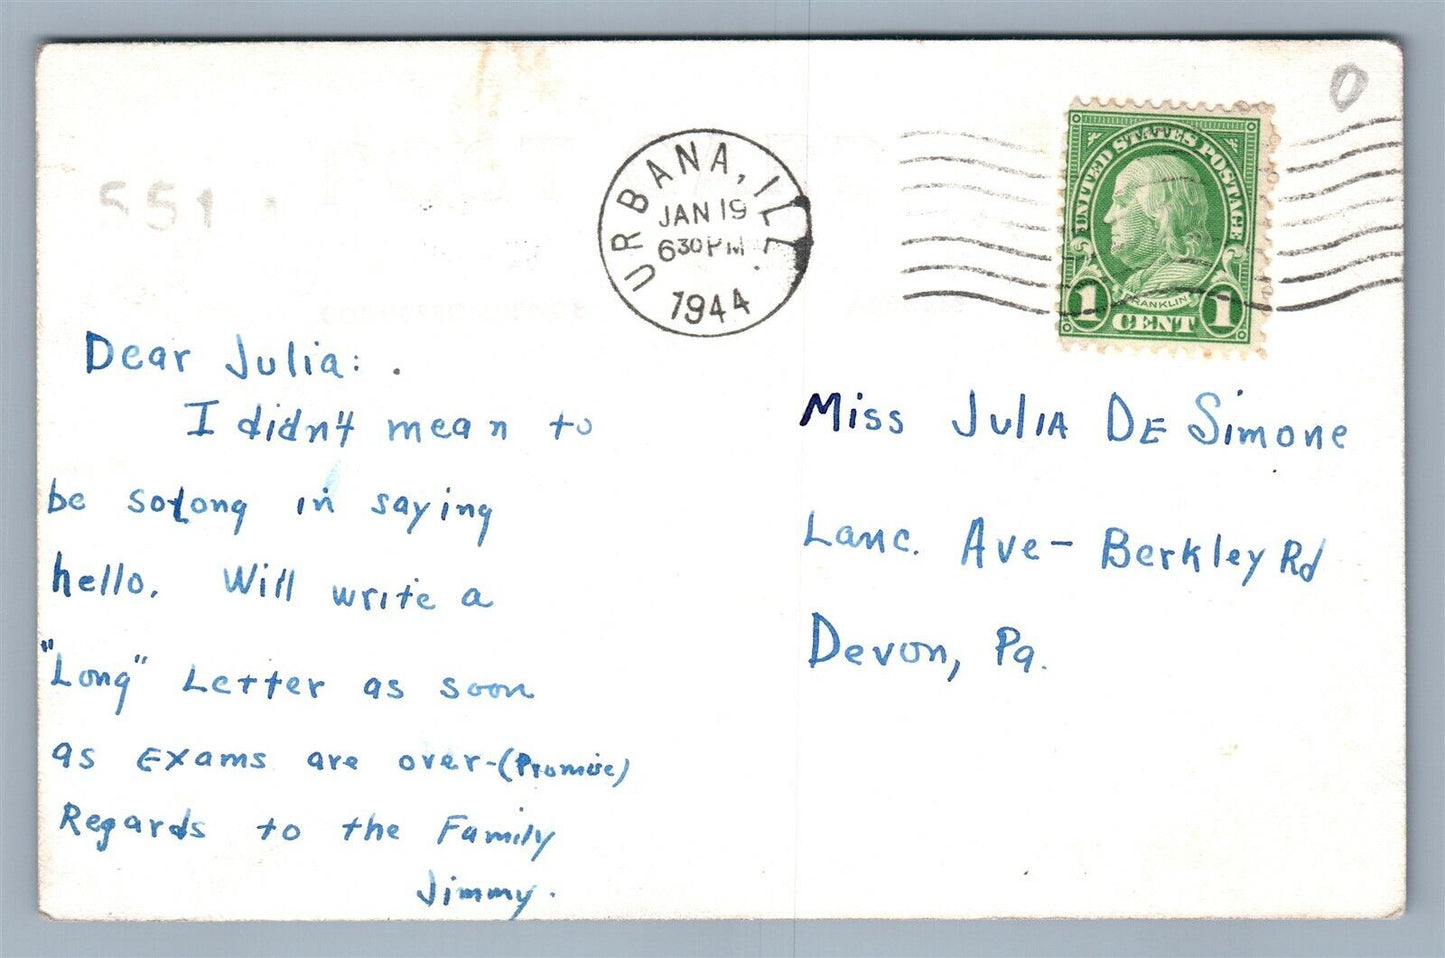 551
URBANA, ILL.
JAN 19
630 PM
1944
0
UNITED STATES POSTAGE
FRANKLIN
1 CENT 1
Dear Julia:
I didn't mean to
be solong in saying
hello. Will write a
"Long" Letter as soon
as Exams are over-(Promise)
Regards to the Family
Jimmy.
Miss Julia De Simone
Lanc. Ave- Berkley Rd
Devon, Pa.